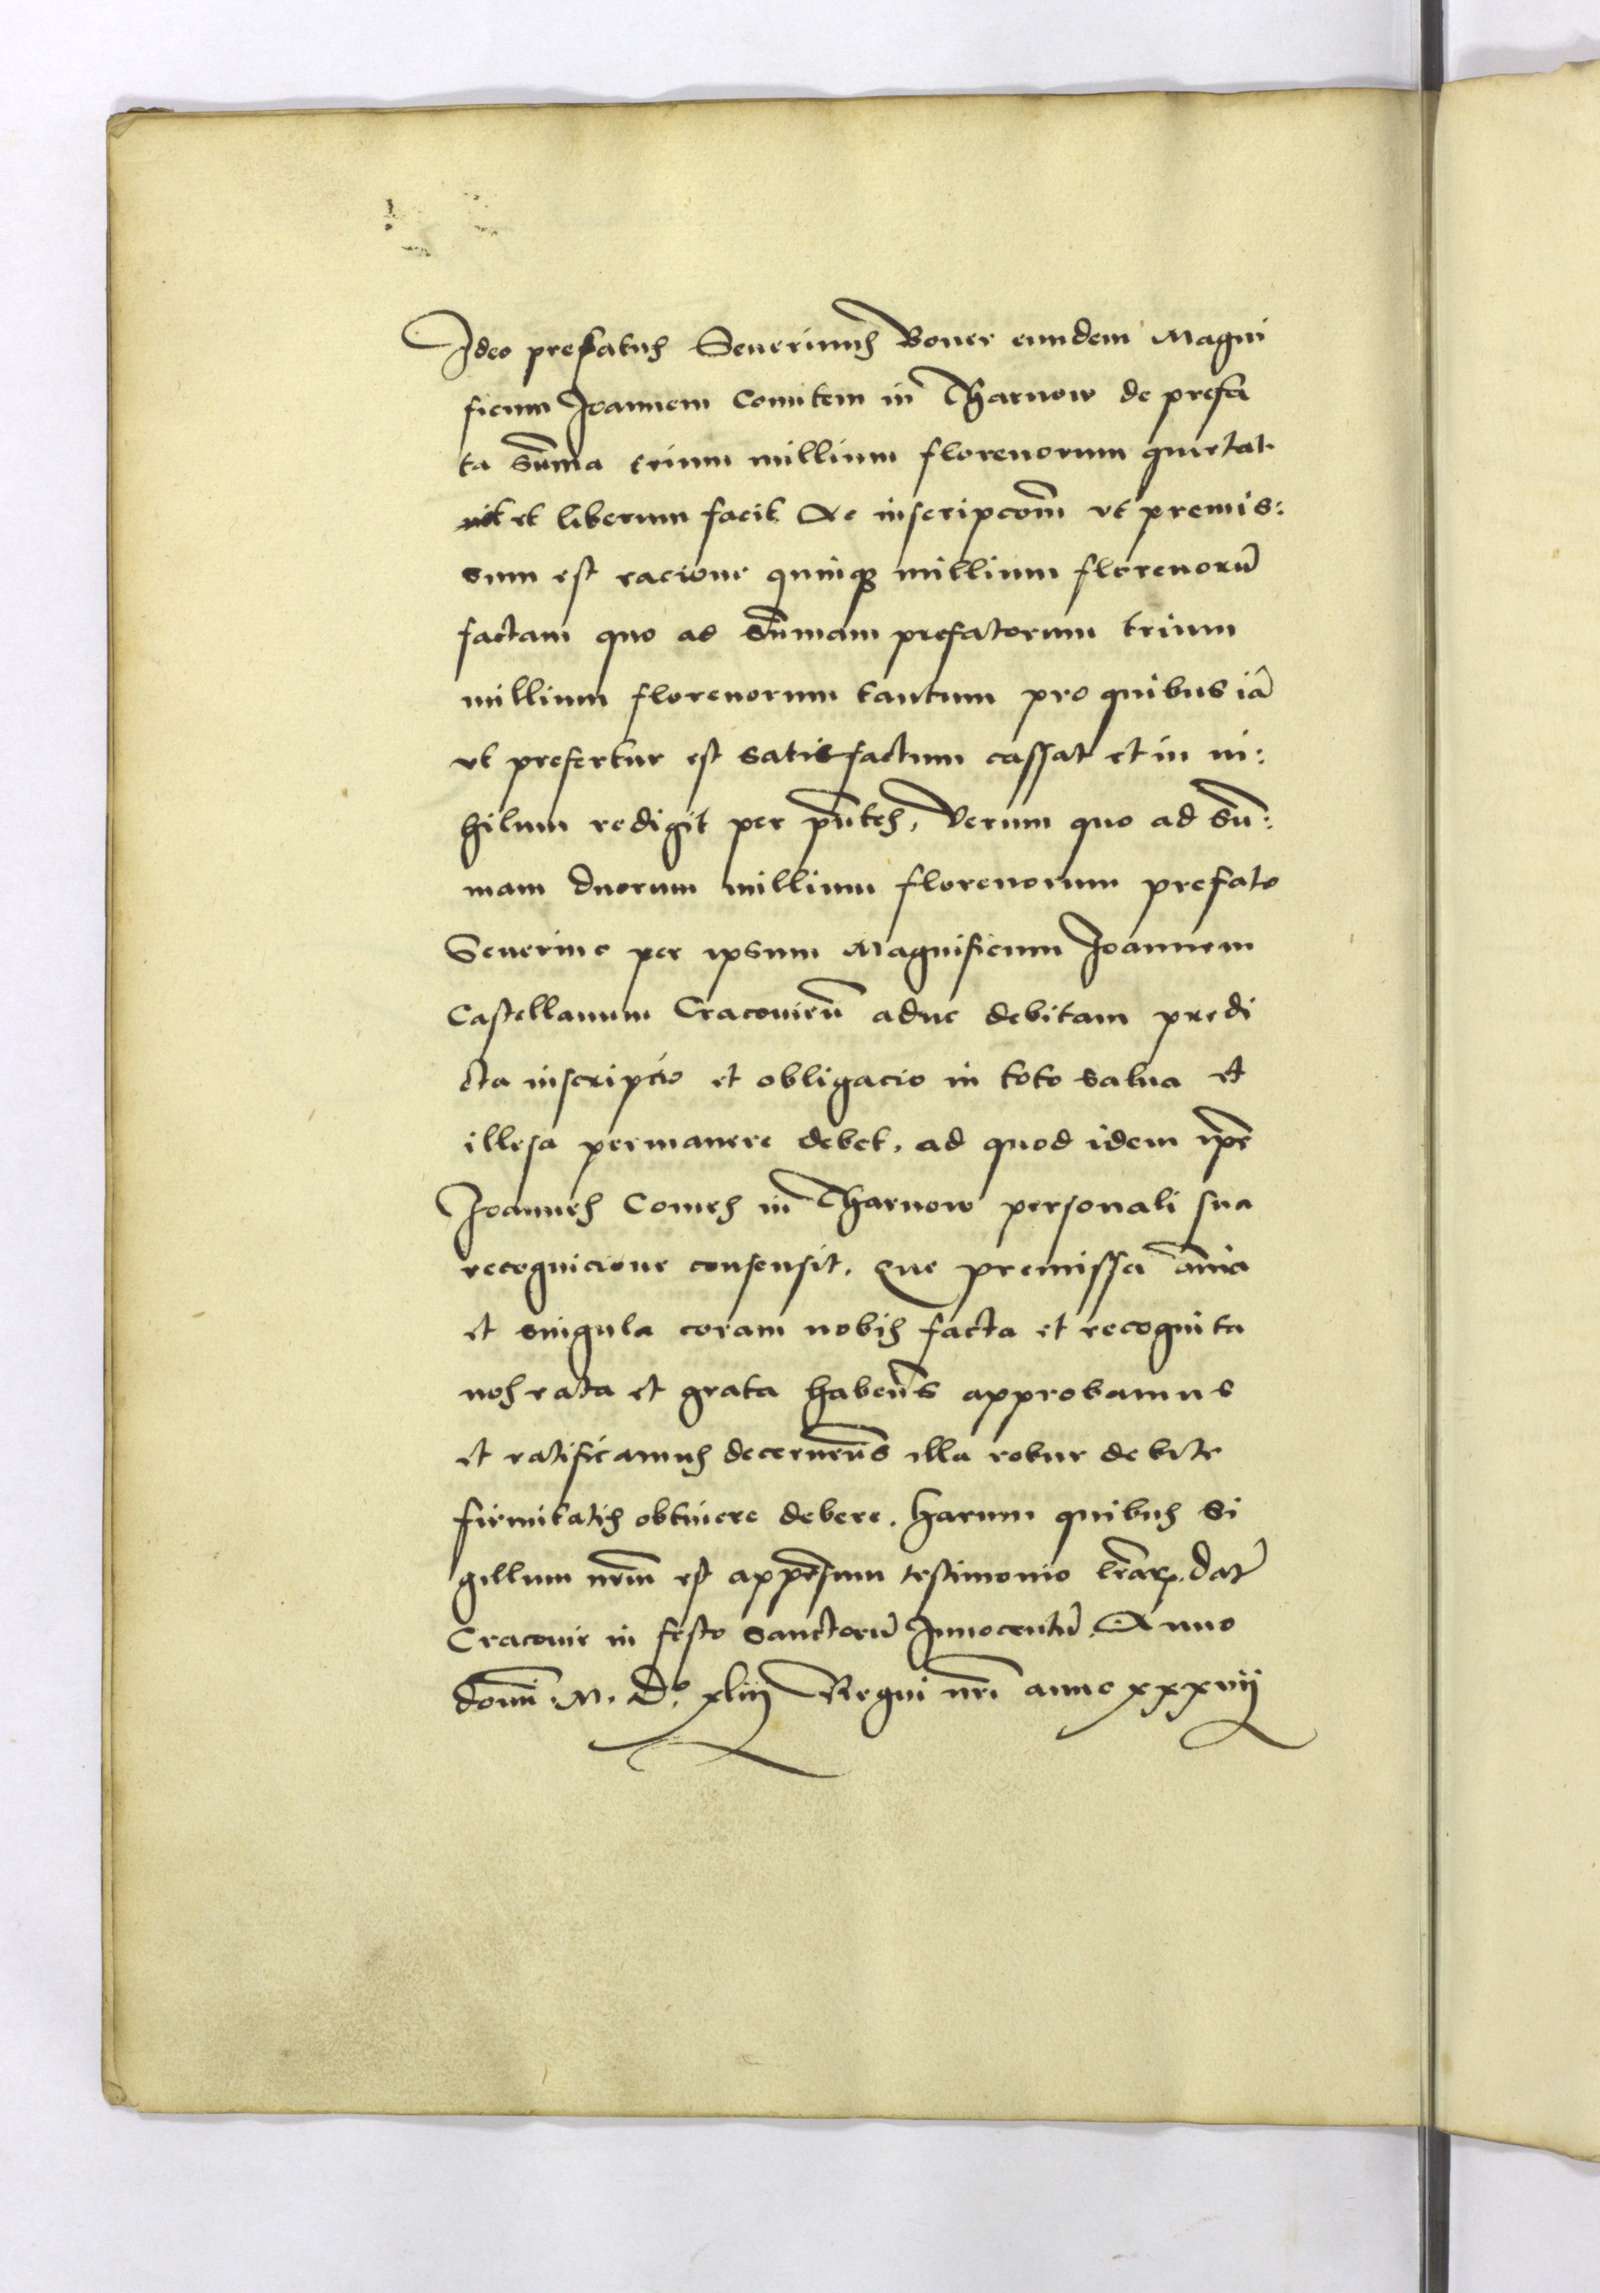 Ideo prefatus Seuerinus Boner eundem Magni
ficum Joannem Comitem in Tharnow de prefa
ta sum̄a trium millium florenorum quietat
et liberum facit Ac inscripcōm vt premis:
sum est racione quinq̧ millium florenorū
factam quo ad sum̄mam prefatorum trium
millium florenorum tantum pro quibus iā
vt prefertur est satisfactum cassat et in ni:
hilum redigit per pn̄tes, Verum quo ad sū:
mam duorum millium florenorum prefato
Seuerino per ipsum Magnificum Joannem
Castellanum Cracovien̄ aduc debitam predi
cta inscripcio et obligacio in toto salua et
illesa permanere debet, ad quod idem ip̄e
Joannes Comes in Tharnow personali sua
recognicione consensit, Que premissa om̄ia
et singula coram nobis facta et recognita
nos rata et grata haben̄s approbamus
et ratificamus decernen̄s illa robur debite
firmitatis obtinere debere. Harum quibus si
gillum nr̄m est appensum testimonio lr̄aꝝ. Dat̄
Cracovie in festo sanctorū Innocentū Anno
domī M. D.º xliij Regni nr̄i anno xxxvij